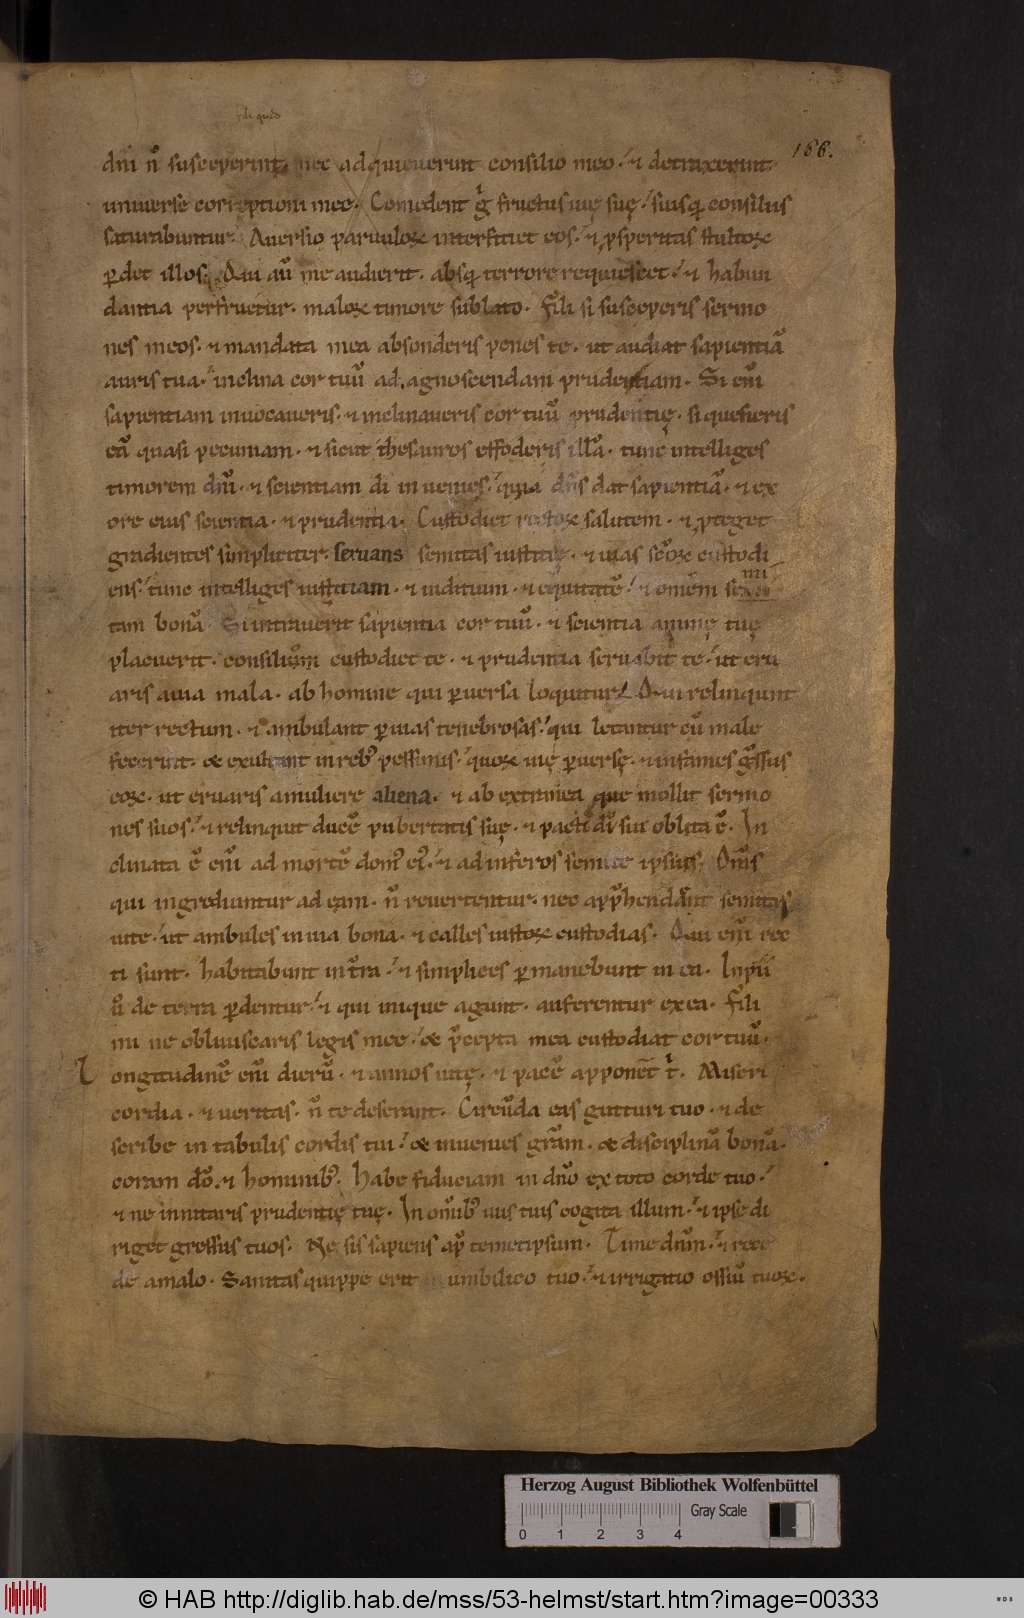 166.
dñi ñ susceperint. nec adquieverunt consilio meo. et detraxerunt
universe correptioni mee. Comedent g̃ fructus vię suę. suisq; consiliis
saturabuntur. Aversio parvuloꝝ interficiet eos. et ꝓsperitas stultoꝝ
ꝑdet illos. Qui aũ me audierit. absq; terrore requiescet. et habun
dantia perfruetur. maloꝝ timore sublato. Fili si susceperis sermo
nes meos. et mandata mea absconderis penes te. ut audiat sapientiã
auris tua. inclina cor tuũ ad agnoscendam prudentiam. Si eñi
sapientiam invocaveris. et inclinaveris cor tuũ prudentię. si quesieris
eã quasi pecuniam. et sicut thesauros effoderis illã. tunc intelliges
timorem dñi. et scientiam di invenies. quia dñs dat sapientiã. et ex
ore eius scientia. et prudentia. Custodiet rectoꝝ salutem. et ꝓteget
gradientes simpliciter. servans semitas iustitię. et vias sc̃oꝝ custodi
ens. tunc intelliges iustitiam. et iuditium. et equitatẽ. et omẽm se
mi
tam bonã. Si intraverit sapientia cor tuũ. et scientia animę tuę
placuerit. consilium custodiet te. et prudentia servabit te. ut eru
aris a via mala. ab homine qui ꝑversa loquitur. Qui relinqunt
iter rectum. et ambulant ꝑ vias tenebrosas. qui letantur cũ male
fecerint. & exultant in reb; pessimis. quoꝝ vię ꝑversę. et infames g̃ssus
eoꝝ. ut eruaris a muliere aliena. et ab extranea que mollit sermo
nes suos. et relinquit ducẽ pubertatis suę. et pacti di sui oblita ẽ. In
clinata ẽ eñi ad mortẽ dom; ei;. et ad inferos semite ipsius. Om̃s
qui ingrediuntur ad eam. ñ revertentur. nec app̃hendant semitas
vite. ut ambules in via bona. et calles iustoꝝ custodias. Qui eñi rec
ti sunt. habitabunt in t̃ra. et simplices ꝑmanebunt in ea. Impii
ũ de terra ꝑdentur. et qui inique agunt. auferentur ex ea. Fili
mi ne obliviscaris legis mee. & p̃cepta mea custodiat cor tuũ.
Longitudinẽ eñi dierũ. et annos vitę. et pacẽ apponent t̃. Miseri
cordia. et veritas. ñ te deserant. Circũda eas gutturi tuo. et de
scribe in tabulis cordis tui. & invenies grãm. & disciplinã bonã.
coram dõ. et hominib;. Habe fiduciam in dño ex toto corde tuo.
et ne innitaris prudentię tuę. In omib; viis tuis cogita illum. et ipse di
riget gressus tuos. Ne sis sapiens ap̃ temetipsum. Time dñm. et rece
de a malo. Sanitas quippe erit in umbilico tuo. et irrigatio ossiũ tuoꝝ.
Herzog August Bibliothek Wolfenbüttel
Gray Scale
0 1 2 3 4
© HAB http://diglib.hab.de/mss/53-helmst/start.htm?image=00333